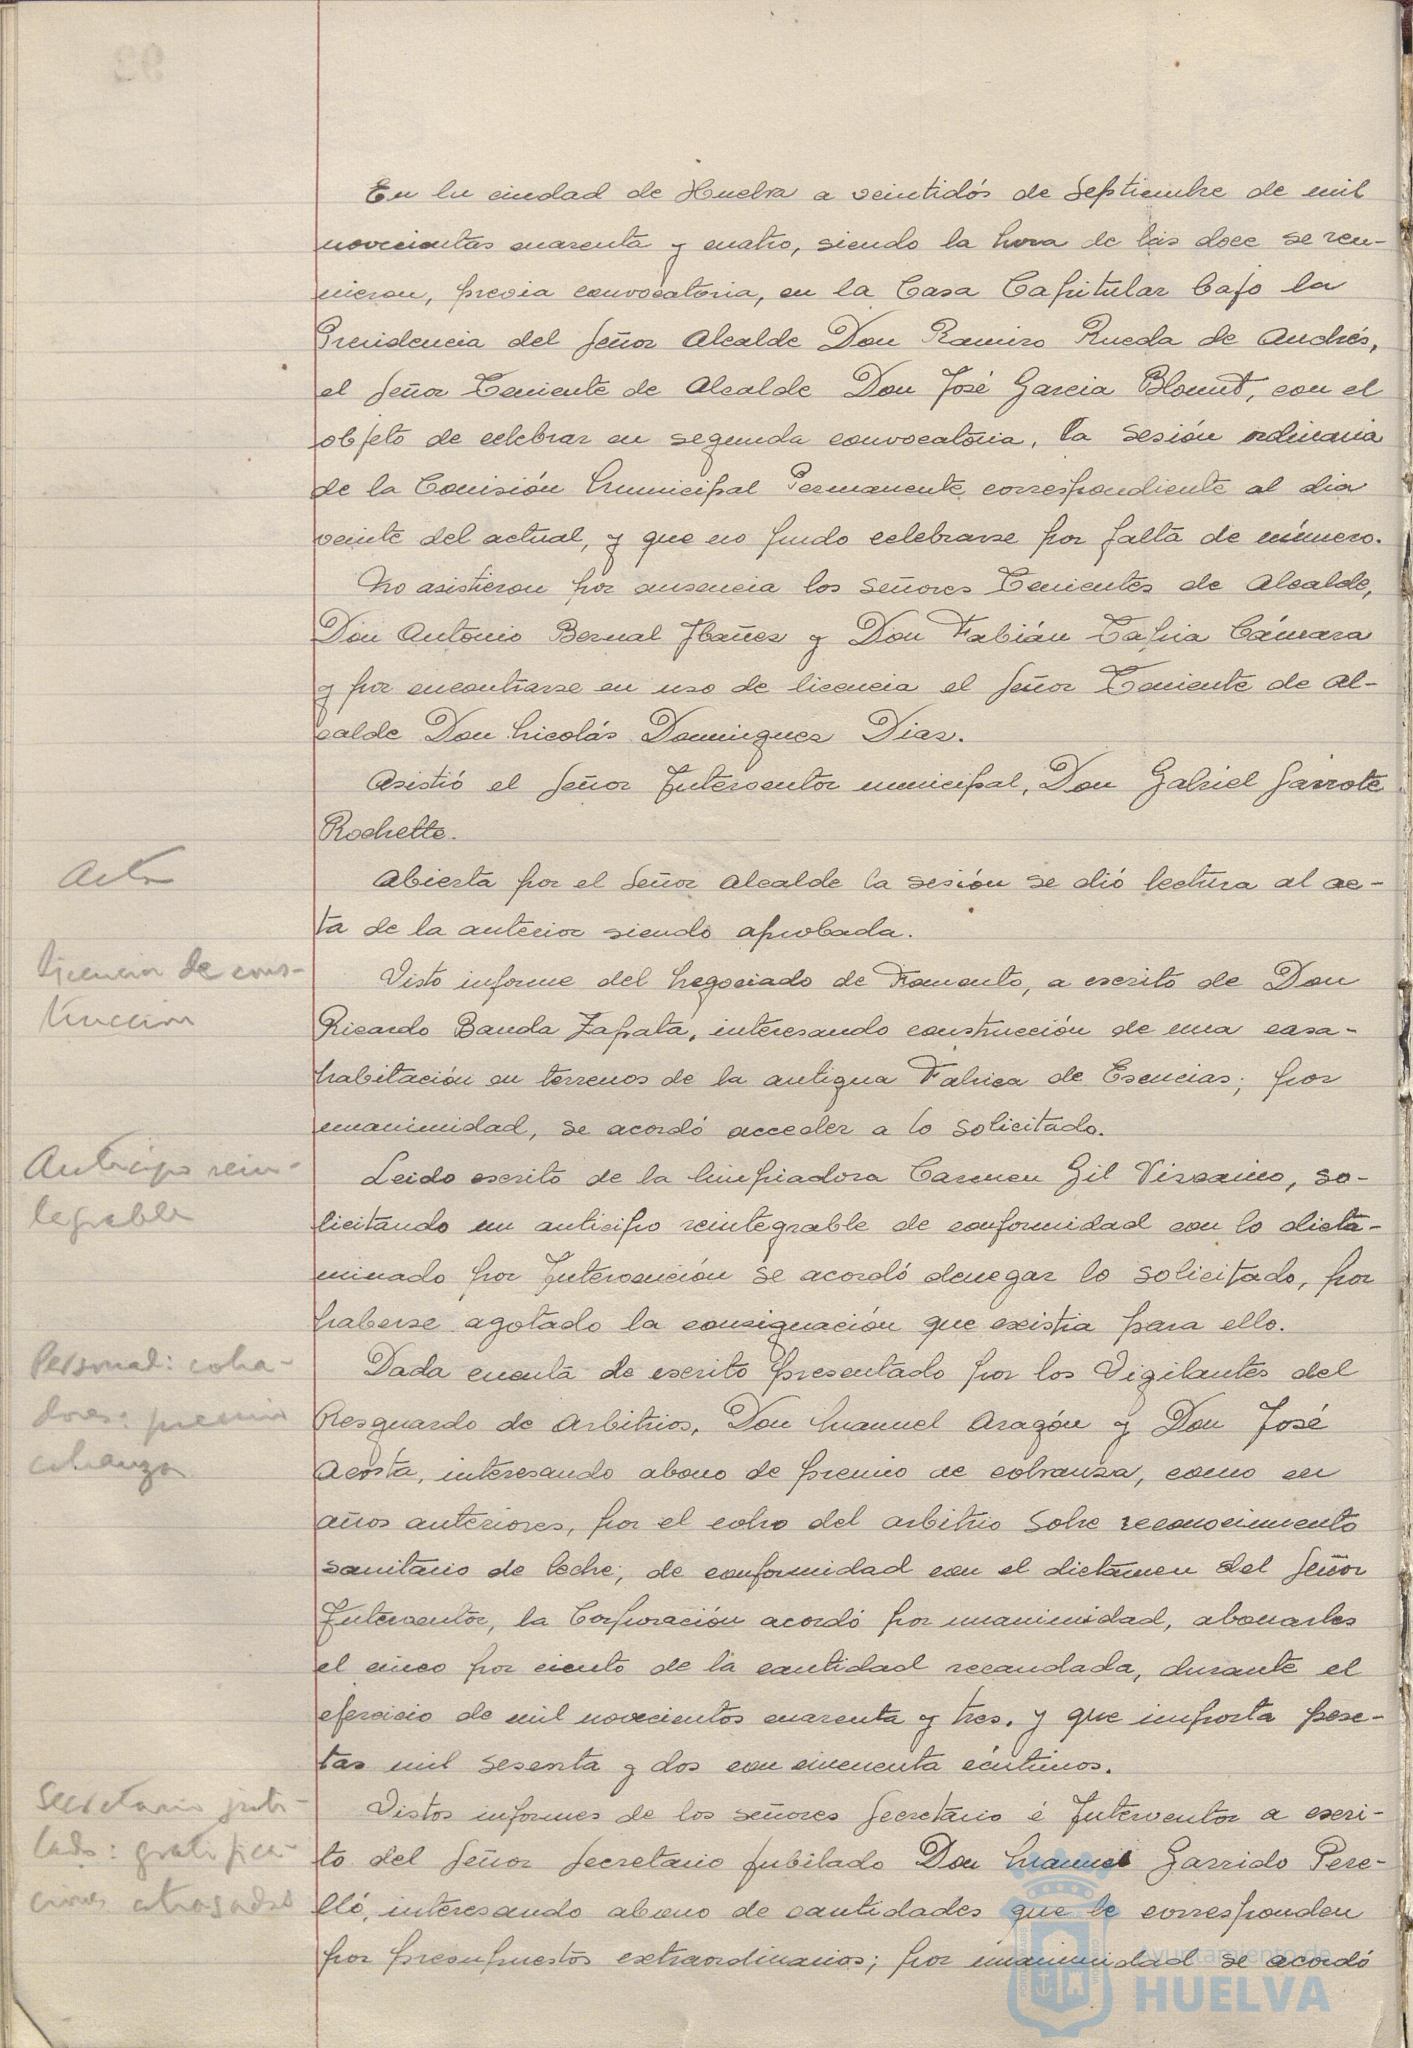 En la ciudad de Huelva a veintidós de Septiembre de mil
novecientos cuarenta y cuatro, siendo la hora de las doce se reu-
nieron, previa convocatoria, en la Casa Capitular bajo la
Presidencia del Señor Alcalde Don Ramiro Rueda de Andrés,
el Señor Teniente de Alcalde Don José Garcia Blomut, con el
objeto de celebrar en segunda convocatoria, la sesión ordinaria
de la Comisión Municipal Permanente correspondiente al dia
veinte del actual, y que no pudo celebrarse por falta de número.
No asistieron por ausencia los señores Tenientes de Alcalde,
Don Antonio Bernal Ibañez y Don Fabián Tapia Cámara
y por encontrarse en uso de licencia el Señor Teniente de Al-
calde Don Nicolás Dominguez Diaz.
Asistió el Señor Interventor municipal, Don Gabriel Garrote
Rochette.
Acta
Abierta por el Señor Alcalde la sesión se dió lectura al ac-
ta de la anterior siendo aprobada.
licencia de cons-
trucción
Visto informe del Negociado de Fomento, a escrito de Don
Ricardo Banda Zapata, interesando construcción de una casa-
habitación en terrenos de la antigua Fabrica de Esencias; por
unanimidad, se acordó acceder a lo solicitado.
Anticipo rein-
tegrable
Leido escrito de la limpiadora Carmen Gil Vizcaino, so-
licitando un anticipo reintegrable de conformidad con lo dicta-
minado por Intervención se acordó denegar lo solicitado, por
haberse agotado la consignación que existia para ello.
Personal: cobra-
dores: premio
cobranza
Dada cuenta de escrito presentado por los Vigilantes del
Resguardo de Arbitrios, Don Manuel Aragón y Don José
Acosta, interesando abono de premio de cobranza, como en
años anteriores, por el cobro del arbitrio sobre reconocimiento
sanitario de leche; de conformidad con el dictamen del Señor
Interventor, la Corporación acordó por unanimidad, abonarles
el cinco por ciento de la cantidad recaudada, durante el
ejercicio de mil novecientos cuarenta y tres. y que importa pese-
tas mil sesenta y dos con cincuenta céntimos.
Secretario jubi-
lado: gratifica-
ciones atrasadas
Vistos informes de los señores Secretario é Interventor a escri-
to del Señor Secretario jubilado Don Manuel Garrido Pere-
lló, interesando abono de cantidades que le corresponden
por presupuestos extraordinarios; por unanimidad se acordó
Ayuntamiento de
HUELVA